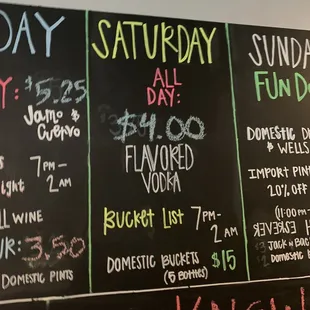 DAY
Y: $5.25
Jamo &
Cuervo
7pm-
ight 2 AM
LL WINE
UR: 3.50
DOMESTIC PINTS
SATURDAY
ALL
DAY:
$4.00
FLAVORED
VODKA
Bucket List 7pm-
2 AM
DOMESTIC BUCKETS $15
(5 Bottles)
SUND
FUN D
DOMESTIC D
& WELLS
IMPORT PINT
20% OFF
(11:00pm-
$3 JACK n BAC
$2 Domestic